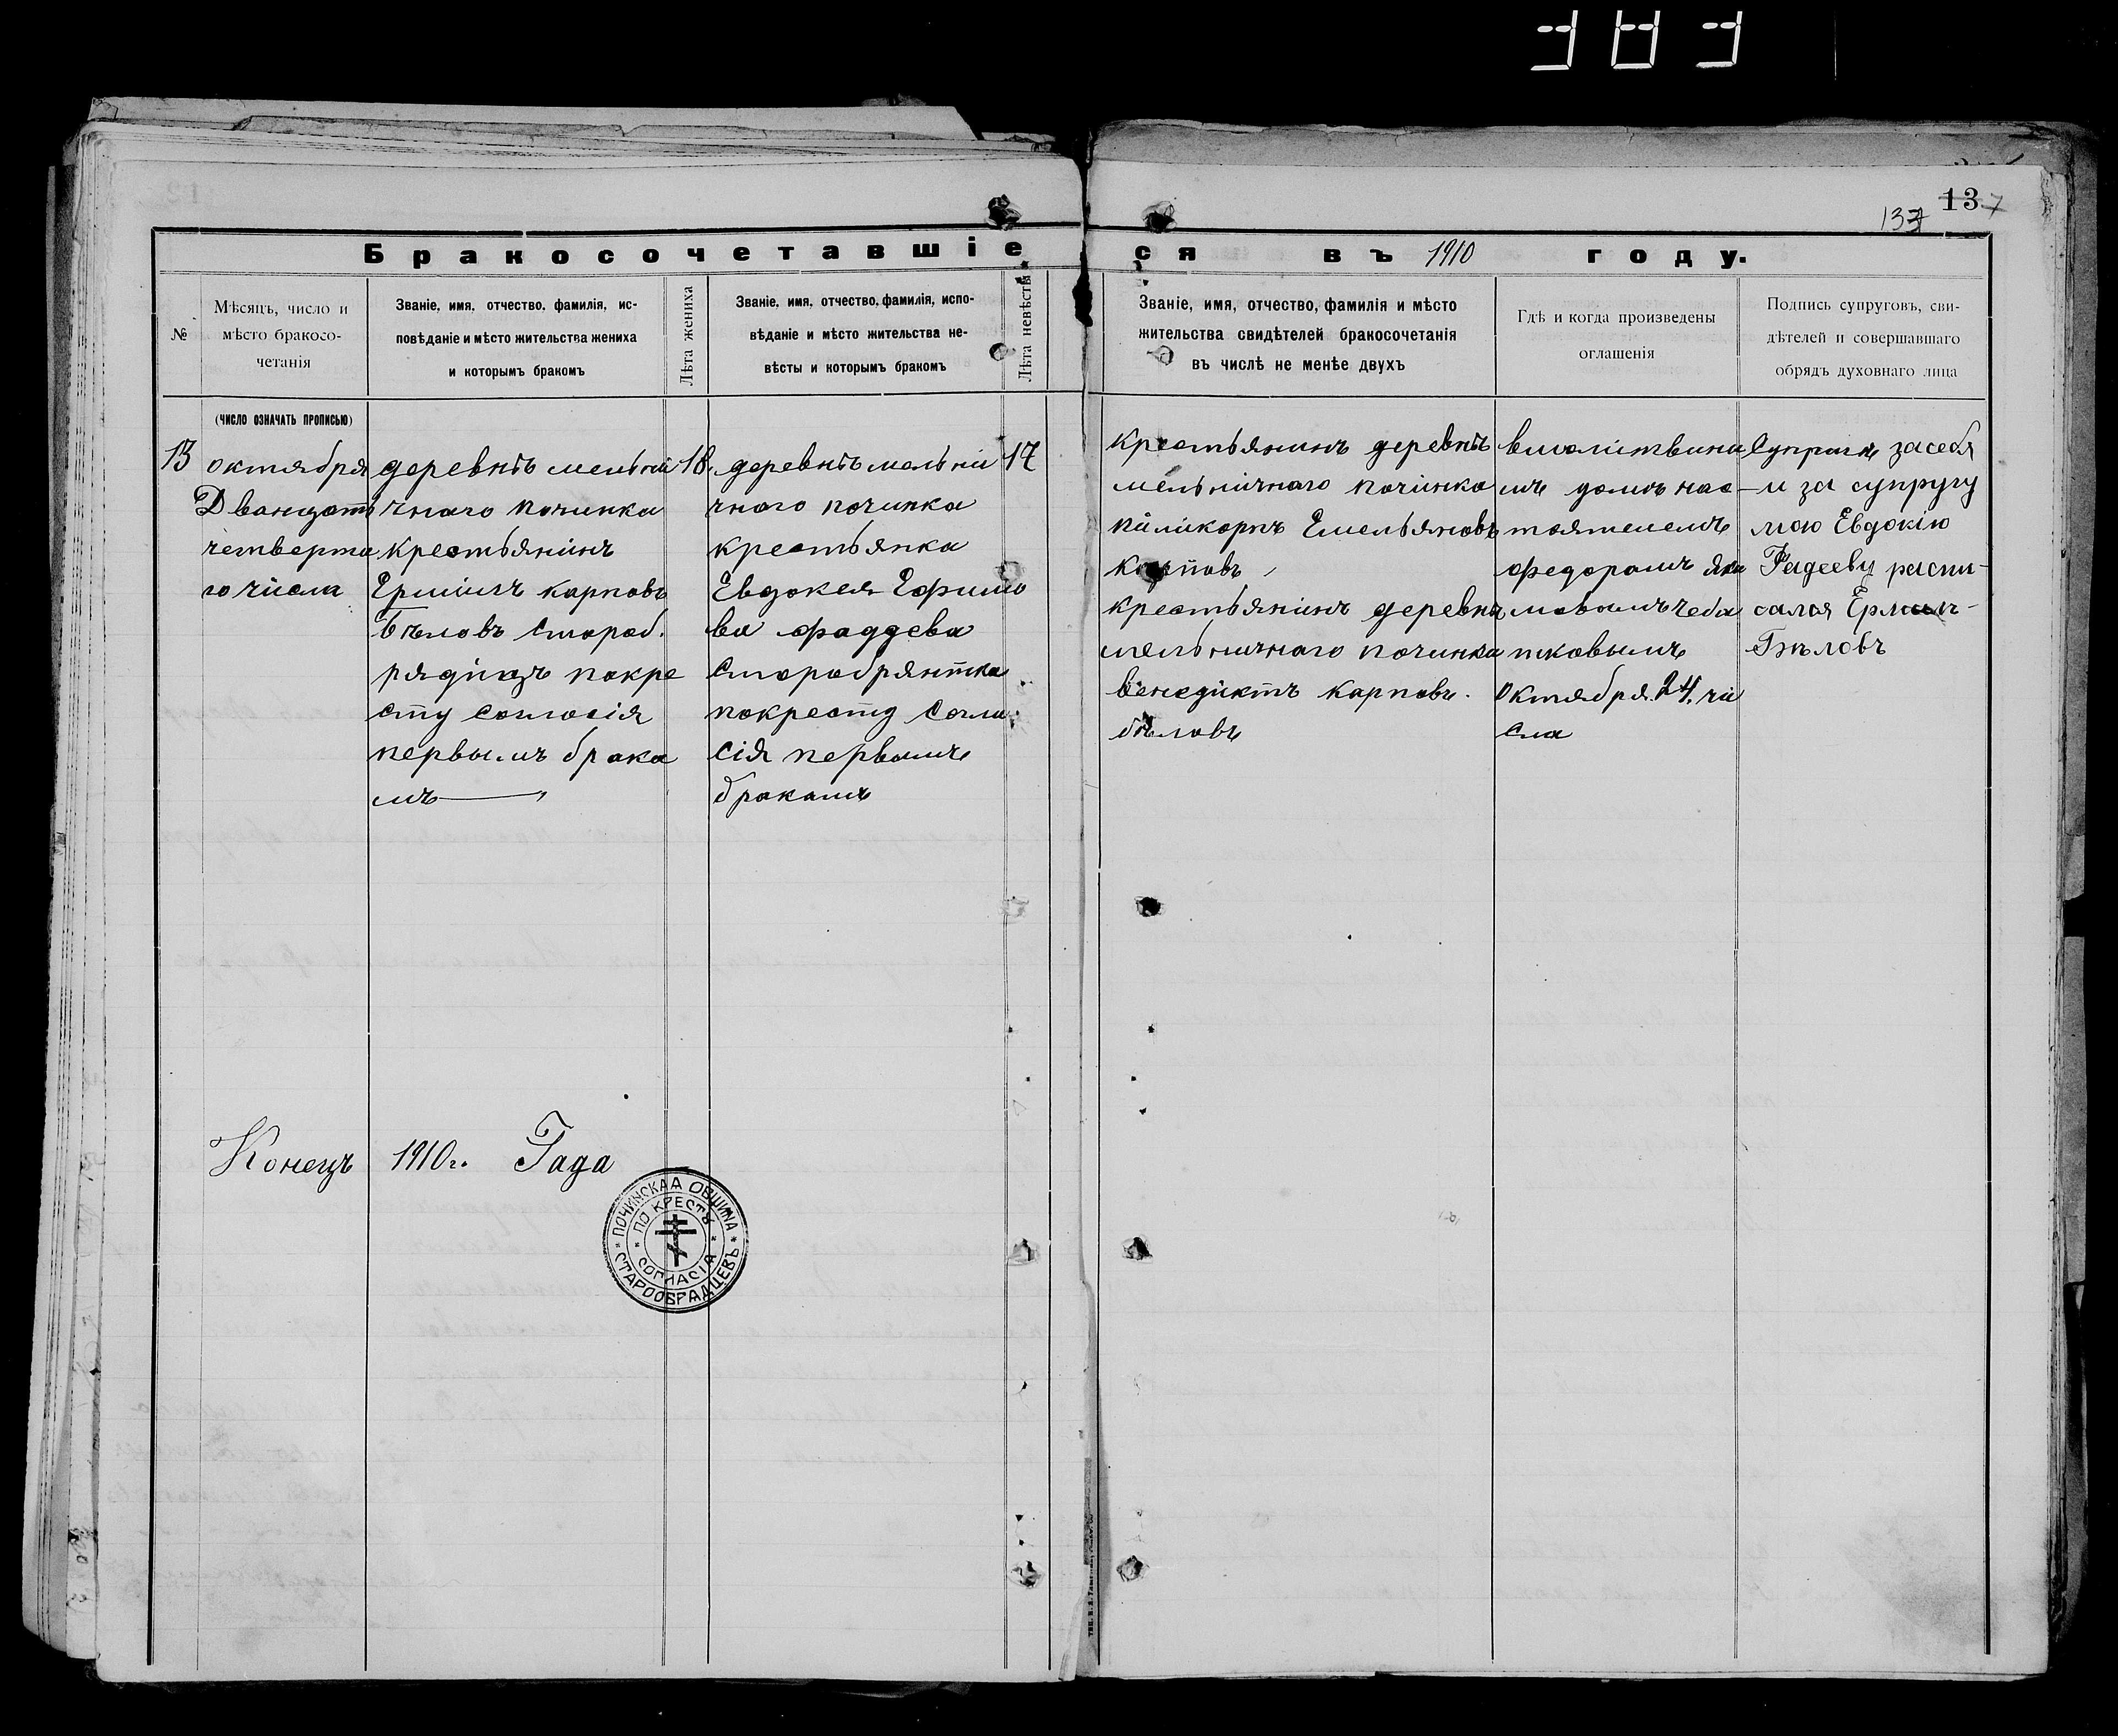 13
137
Бракосочетавшіеся въ 1910 году.
№
Мѣсяцъ, число и
мѣсто бракосо-
четанія
Званіе, имя, отчество, фамилія, ис-
повѣданіе и мѣсто жительства жениха
и которымъ бракомъ
Лѣта жениха
Званіе, имя, отчество, фамилія, испо-
вѣданіе и мѣсто жительства не-
вѣсты и которымъ бракомъ
Лѣта невѣсты
Званіе, имя, отчество, фамилія и мѣсто
жительства свидѣтелей бракосочетанія
въ числѣ не менѣе двухъ
Гдѣ и когда произведены
оглашенія
Подпись супруговъ, сви-
дѣтелей и совершавшаго
обрядъ духовнаго лица
(число означать прописью)
13
октября
Дванцать
четверта
го числа
деревнѣ мельни
чнаго починка
крестьянинъ
Ермилъ карповъ
Бѣловъ стороб.
рядіцъ покре
сту согласія
первымъ брака
мъ
18.
деревнѣ мельни
чного починка
крестьянка
Евдокея Ефимо
ва фаддева
старобрянтка
покресту согла
сія первымъ
бракамъ
17
крестьянинъ деревнѣ
мельничнаго починка
Паликорпъ Емельяновъ
карповъ
крестьянинъ деревнѣ
мельничнаго починка
венедиктъ карповъ.
бѣловъ
вмолитвина
мъ домъ нас-
тоятелемъ
федорамъ яка
мовымъ чеба
тковымъ
октября 24. чи
сла
Супругъ засебя
и за супругу
мою Евдокію
Фадееву распи-
сался Ермилъ-
Бѣловъ
Конецъ 1910г. Гада
ПОЧИНСКАЯ ОБЩИНА
СТАРООБРАДЦЕВЪ
ПО КРЕСТЬ
СОГЛАСІА